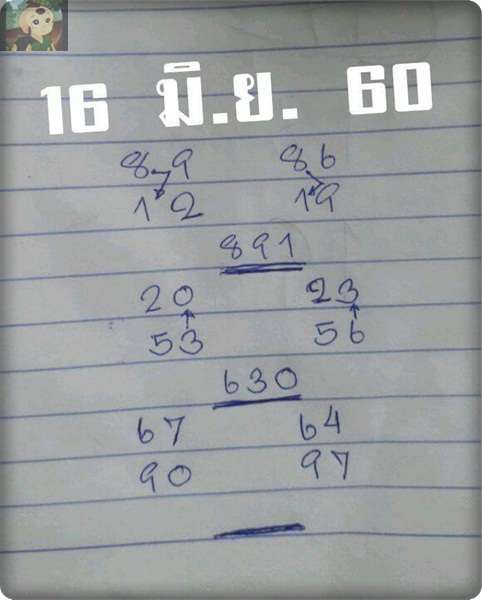 16 มิ.ย. 60
89 86
12 19
891
20 23
53 56
630
67 64
90 97